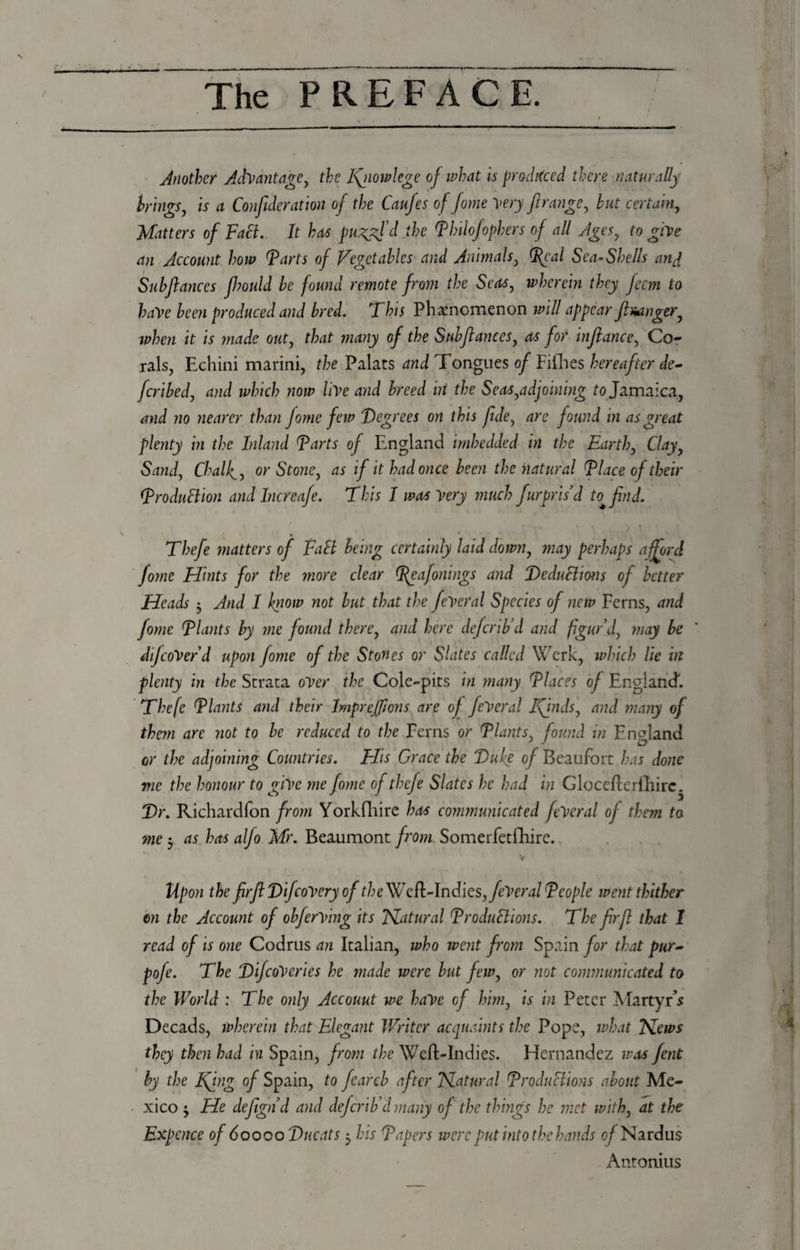 The PREFACE.
Another Advantage, the Knowlege of what is produced there naturally
brings, is a Consideration of the Causes of some very strange, but certain,
Matters of Fact. It has puzzl'd the Philosophers of all Ages, to give
an Account how Parts of Vegetables and Animals, Real Sea-Shells and
Substances should be found remote from the Seas, wherein they seem to
have been produced and bred. This Phænomenon will appear stranger,
when it is made out, that many of the Substances, as for instance, Co-
rals, Echini marini, the Palats and Tongues of Fishes hereafter de-
scribed, and which now live and breed in the Seas,adjoining to Jamaica,
and no nearer than some few Degrees on this side, are found in as great
plenty in the Inland Parts of England imbedded in the Earth, Clay,
Sand, Chalk, or Stone, as if it had once been the natural Place of their
Production and Increase. This I was very much surpris'd to find.
These matters of Fact being certainly laid down, may perhaps afford
some Hints for the more clear Reasonings and Deductions of better
Heads ; And I know not but that the several Species of new Ferns, and
some Plants by me found there, and here describ'd and figur'd, may be
discover'd upon some of the Stones or Slates called Werk, which lie in
plenty in the Strata over the Cole-pits in many Places of England.
These Plants and their Impressions are of several Kinds, and many of
them are not to be reduced to the Ferns or Plants, found in England
or the adjoining Countries. His Grace the Duke of Beaufort has done
me the honour to give me some of these Slates he had in Glocestershire.
Dr. Richardson from Yorkshire has communicated several of them to
me ; as has also Mr. Beaumont from Somersetshire.
Upon the first Discovery of the West-Indies, several People went thither
on the Account of observing its Natural Productions. The first that I
read of is one Codrus an Italian, who went from Spain for that pur-
pose. The Discoveries he made were but few, or not communicated to
the World : The only Accouut we have of him, is in Peter Martyr's
Decads, wherein that Elegant Writer acquaints the Pope, what News
they then had in Spain, from the West-Indies. Hernandez was sent
by the King of Spain, to search after Natural Productions about Me-
xico ; He design'd and describ'd many of the things he met with, at the
Expence of 60000 Ducats ; his Papers were put into the hands of Nardus
Antonius